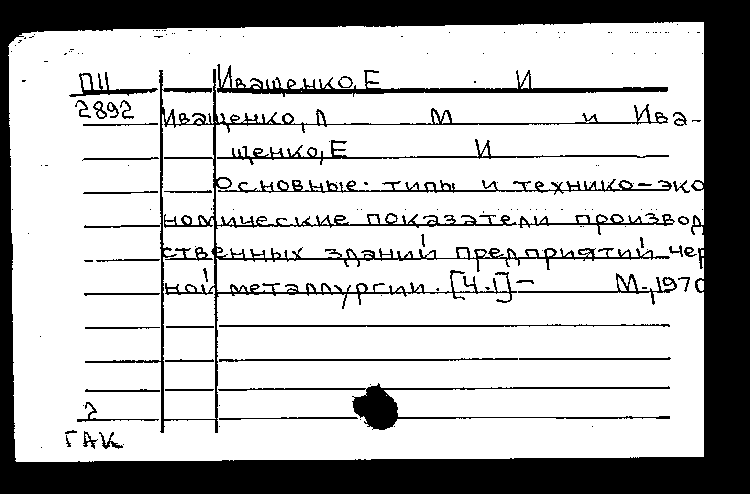 ПН Иващенко, Е И
2892 Иващенко, Л М и Ива-
щенко, Е И
Основные типы и технико-эко
номические показатели производ
ственных зданий предприятий чер
ной металлургии. [Ч.I]— М., 1970
2
ГАК